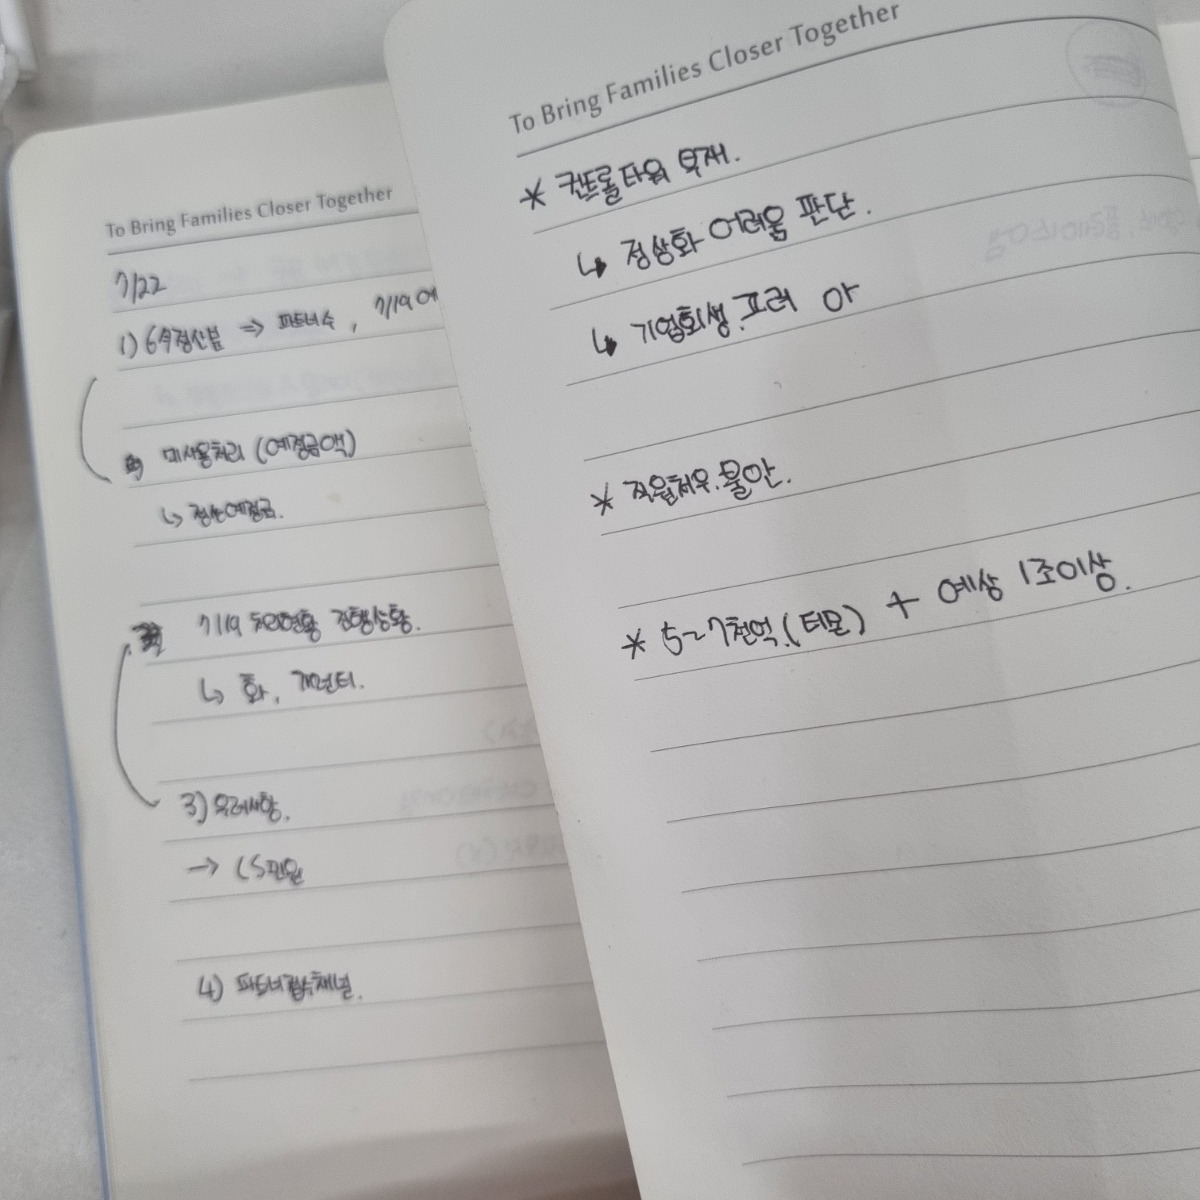 To Bring Families Closer Together
7/22
1) 6月정산분 ⇒ 파트너수, 7/19
미사용처리 (예정금액)
↳ 정산예정금.
7/19 처리현황 진행상황.
↳ 화,
3) 우려사항.
→ CS민원
4) 파트너접수채널.
To Bring Families Closer Together
* 컨트롤타워 부재.
↳ 정상화 어려움 판단.
↳ 기업회생.프러 야
* 직원처우.불안.
* 5~7천억.(티몬) + 예상 1조이상.